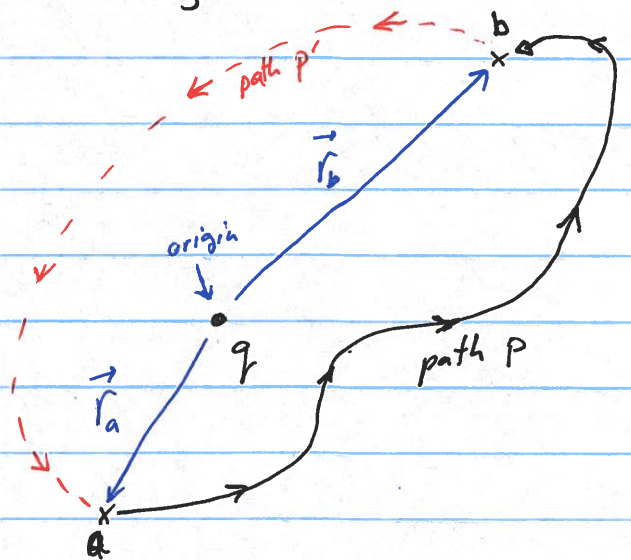 b
path P'
r_b
origin
q
path P
r_a
a